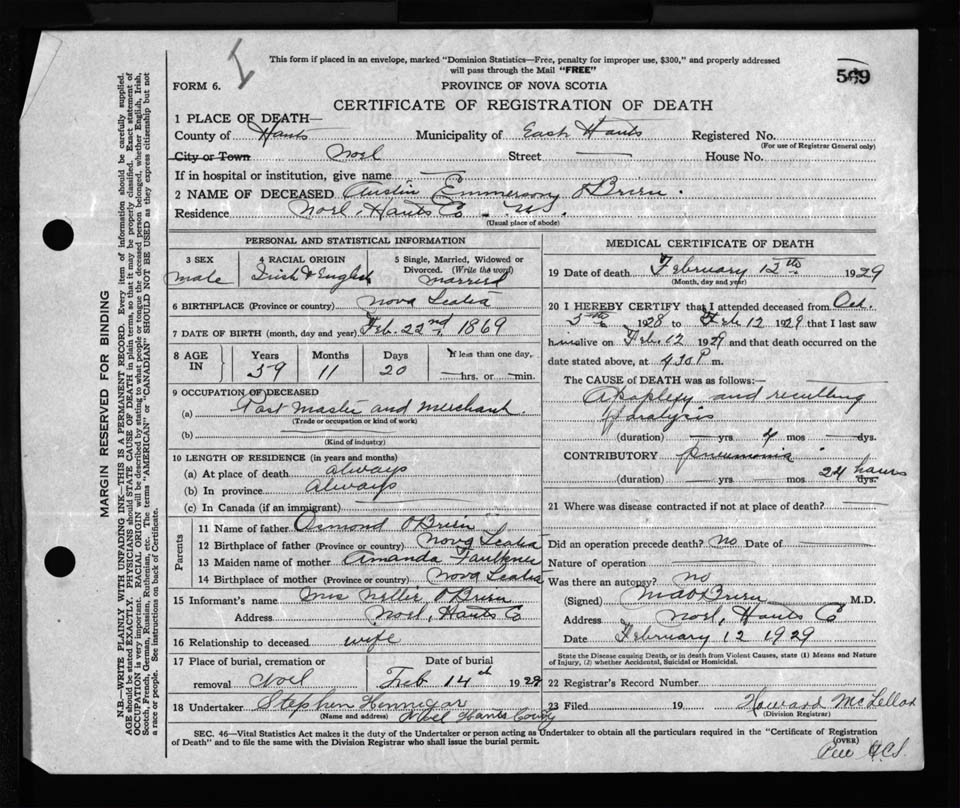 This form if placed in an envelope, marked "Dominion Statistics—Free, penalty for improper use, $300," and properly addressed
will pass through the Mail "FREE"
569
FORM 6.
PROVINCE OF NOVA SCOTIA
CERTIFICATE OF REGISTRATION OF DEATH
1 PLACE OF DEATH—
County of Hants Municipality of East Hants Registered No.
(For use of Registrar General only)
City or Town Noel Street — House No.
If in hospital or institution, give name —
2 NAME OF DECEASED Austin Emmerson O'Brien.
Residence Noel, Hants Co. N.S.
(Usual place of abode)
PERSONAL AND STATISTICAL INFORMATION
3 SEX male
4 RACIAL ORIGIN Irish & English
5 Single, Married, Widowed or Divorced. (Write the word) married
6 BIRTHPLACE (Province or country) Nova Scotia
7 DATE OF BIRTH (month, day and year) Feb. 22nd 1869
8 AGE IN Years 59 Months 11 Days 20 If less than one day, — hrs. or — min.
9 OCCUPATION OF DECEASED
(a) Post Master and merchant.
(Trade or occupation or kind of work)
(b) —
(Kind of industry)
10 LENGTH OF RESIDENCE (in years and months)
(a) At place of death always
(b) In province always
(c) In Canada (if an immigrant) —
Parents
11 Name of father Osmond O'Brien
12 Birthplace of father (Province or country) Nova Scotia
13 Maiden name of mother Amanda Faulkner
14 Birthplace of mother (Province or country) Nova Scotia
15 Informant's name Mrs Nellie O'Brien
Address Noel, Hants Co
16 Relationship to deceased wife
17 Place of burial, cremation or removal Noel Date of burial Feb 14th 1929
18 Undertaker Stephen Hennigar
(Name and address) Noel Hants County
MEDICAL CERTIFICATE OF DEATH
19 Date of death February 12th 1929
(Month, day and year)
20 I HEREBY CERTIFY that I attended deceased from Oct.
5th 1928 to Feb. 12 1929 that I last saw
him alive on Feb. 12 1929 and that death occurred on the
date stated above, at 4.30 P. m.
The CAUSE of DEATH was as follows:—
Apoplexy and resulting
paralysis
(duration) — yrs. 4 mos — dys.
CONTRIBUTORY pneumonia
(duration) — yrs — mos 24 hours dys.
21 Where was disease contracted if not at place of death? —
Did an operation precede death? no Date of —
Nature of operation —
Was there an autopsy? no
(Signed) O'Brien M.D.
Address Noel, Hants Co
Date February 12 1929
State the Disease causing Death, or in death from Violent Causes, state (1) Means and Nature
of Injury, (2) whether Accidental, Suicidal or Homicidal.
22 Registrar's Record Number
23 Filed 19 Howard McLellan
(Division Registrar)
SEC. 46—Vital Statistics Act makes it the duty of the Undertaker or person acting as Undertaker to obtain all the particulars required in the "Certificate of Registration
of Death" and to file the same with the Division Registrar who shall issue the burial permit.
(OVER)
MARGIN RESERVED FOR BINDING
N.B.—WRITE PLAINLY WITH UNFADING INK—THIS IS A PERMANENT RECORD. Every item of information should be carefully supplied.
AGE should be stated EXACTLY. PHYSICIANS should STATE CAUSE OF DEATH in plain terms, so that it may be properly classified. Exact statement of
OCCUPATION is very important. RACIAL ORIGIN will be described by stating to what people or tongue the deceased person belonged, whether English, Irish,
Scotch, French, German, Russian, Ruthenian, etc. The terms "AMERICAN" or "CANADIAN" SHOULD NOT BE USED as they express citizenship but not
a race or people. See instructions on back of Certificate.